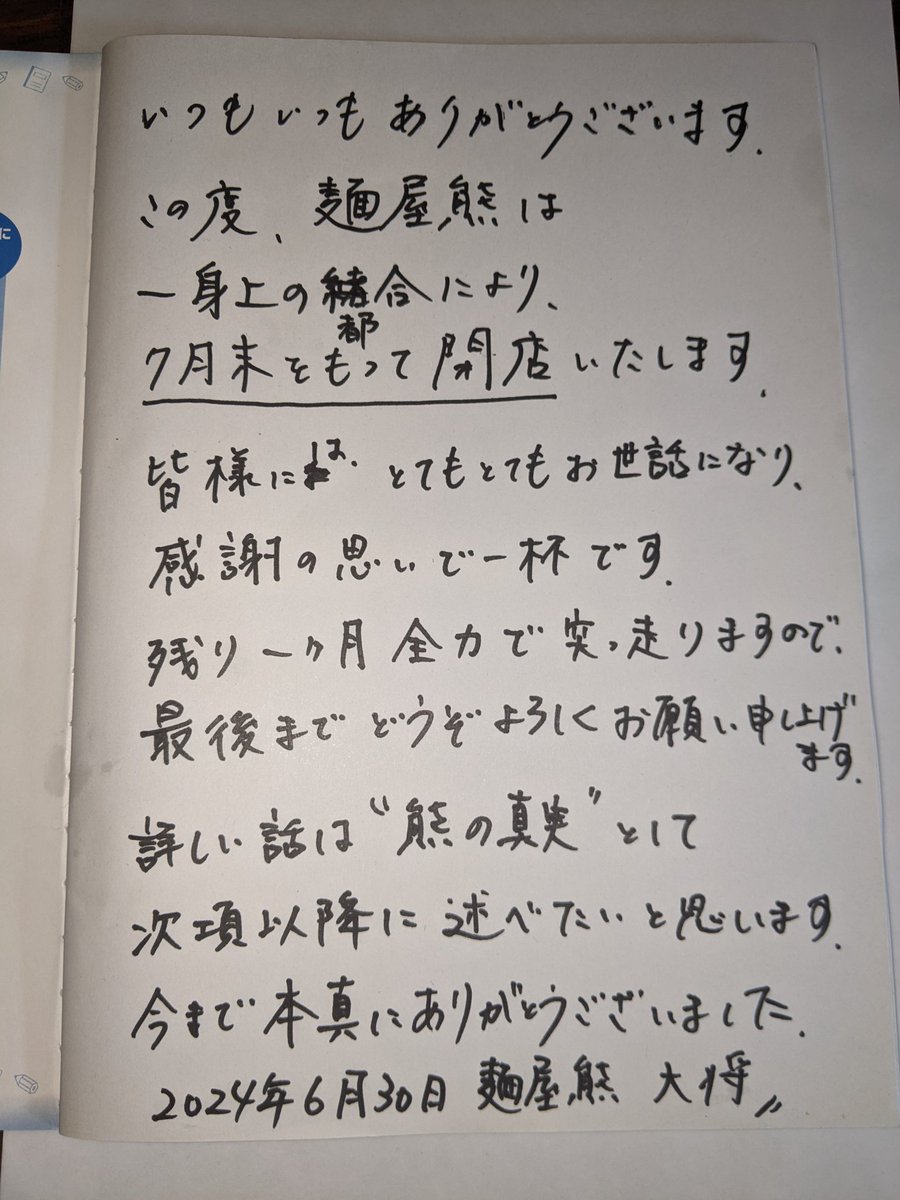 いつもいつもありがとうございます.
この度、麺屋熊は
一身上の都合により、
7月末をもって閉店いたします.
皆様には、とてもとてもお世話になり、
感謝の思いで一杯です.
残り一ヶ月全力で突っ走りますので、
最後までどうぞよろしくお願い申し上げ
ます.
詳しい話は“熊の真実”として
次項以降に述べたいと思います.
今まで本真にありがとうございました.
2024年6月30日 麺屋熊 大将〃
に